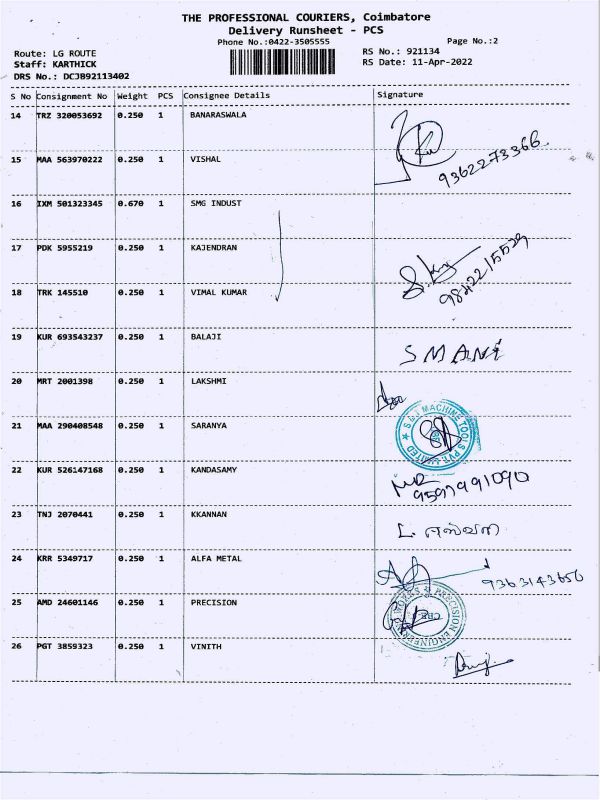 THE PROFESSIONAL COURIERS, Coimbatore
Delivery Runsheet - PCS
Phone No.:0422-3505555
Page No.:2
Route: LG ROUTE
RS No.: 921134
Staff: KARTHICK
RS Date: 11-Apr-2022
DRS No.: DCJB92113402
S No Consignment No Weight PCS Consignee Details Signature
14 TRZ 320053692 0.250 1 BANARASWALA
15 MAA 563970222 0.250 1 VISHAL 9362273366
16 IXM 501323345 0.670 1 SMG INDUST
17 PDK 5955219 0.250 1 KAJENDRAN
18 TRK 145510 0.250 1 VIMAL KUMAR 9842215529
19 KUR 693543237 0.250 1 BALAJI SMANI
20 MRT 2001398 0.250 1 LAKSHMI
21 MAA 290408548 0.250 1 SARANYA S & J MACHINE TOOLS PVT. LIMITED
22 KUR 526147168 0.250 1 KANDASAMY 9597991090
23 TNJ 2070441 0.250 1 KKANNAN
24 KRR 5349717 0.250 1 ALFA METAL 9363143656
25 AMD 24601146 0.250 1 PRECISION WORKS PRECISION ENGINEERING CBE
26 PGT 3859323 0.250 1 VINITH